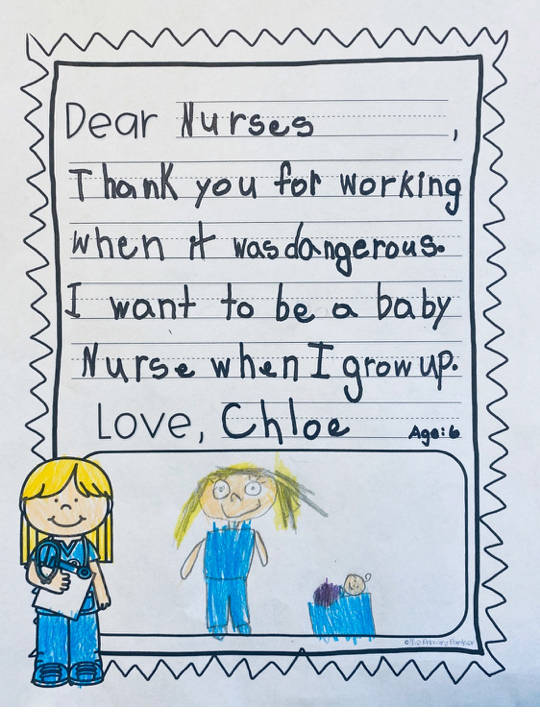 Dear Nurses,
Thank you for working
when it was dangerous.
I want to be a baby
Nurse when I grow up.
Love, Chloe Age: 6